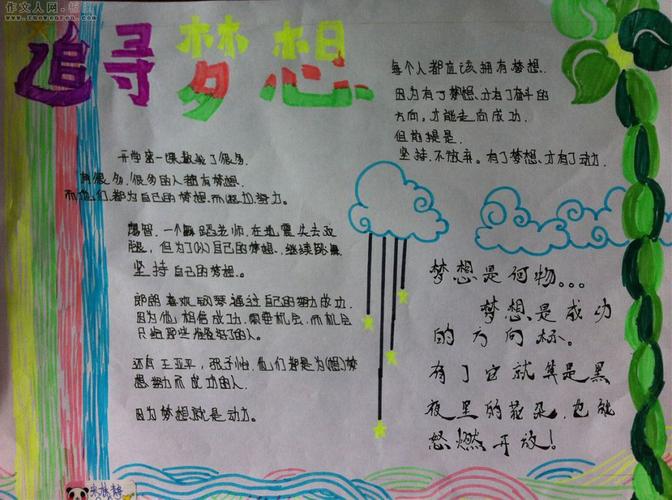 作文人网
追寻梦想
每个人都应该拥有梦想.
因为有了梦想.才有了奋斗的
方向,才能走向成功.
但前提是.
坚持.不放弃.有了梦想.才有了动力.
开学第一课教会了很多.
有很多.很多的人拥有梦想.
而他们都为自己的梦想.而起功努力.
廖智.一个舞蹈老师.在地震失去双
腿,但为了(从)自己的梦想.继续跳舞
坚持自己的梦想。
郎朗喜欢钢琴通过自己的努力成功.
因为他相信成功.需要机会.而机会
只给那些准备好了的人.
还有王亚平,他们都是为(想)梦
想努力而成功的人.
因为梦想就是动力。
梦想是何物...
梦想是成功
的方向标。
有了它就算是黑
夜里的花朵.也能
怒燃开放!